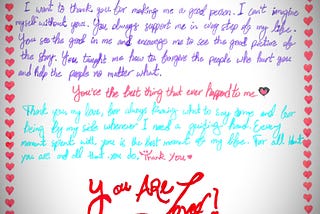 I want to thank you for making me a good person. I can't imagine
myself without you. You always support me in every step of my life.
You see the good in me and encourage me to see the good picture of
the story. You taught me how to forgive the people who hurt you
and help the people no matter what.
You're the best thing that ever happened to me
Thank you my love, for always knowing what to say to me and for
being by my side whenever I need a guiding hand. Every
moment spent with you is the best moment of my life. For all that
you are and all that you do, Thank You
You ARE
Loved!